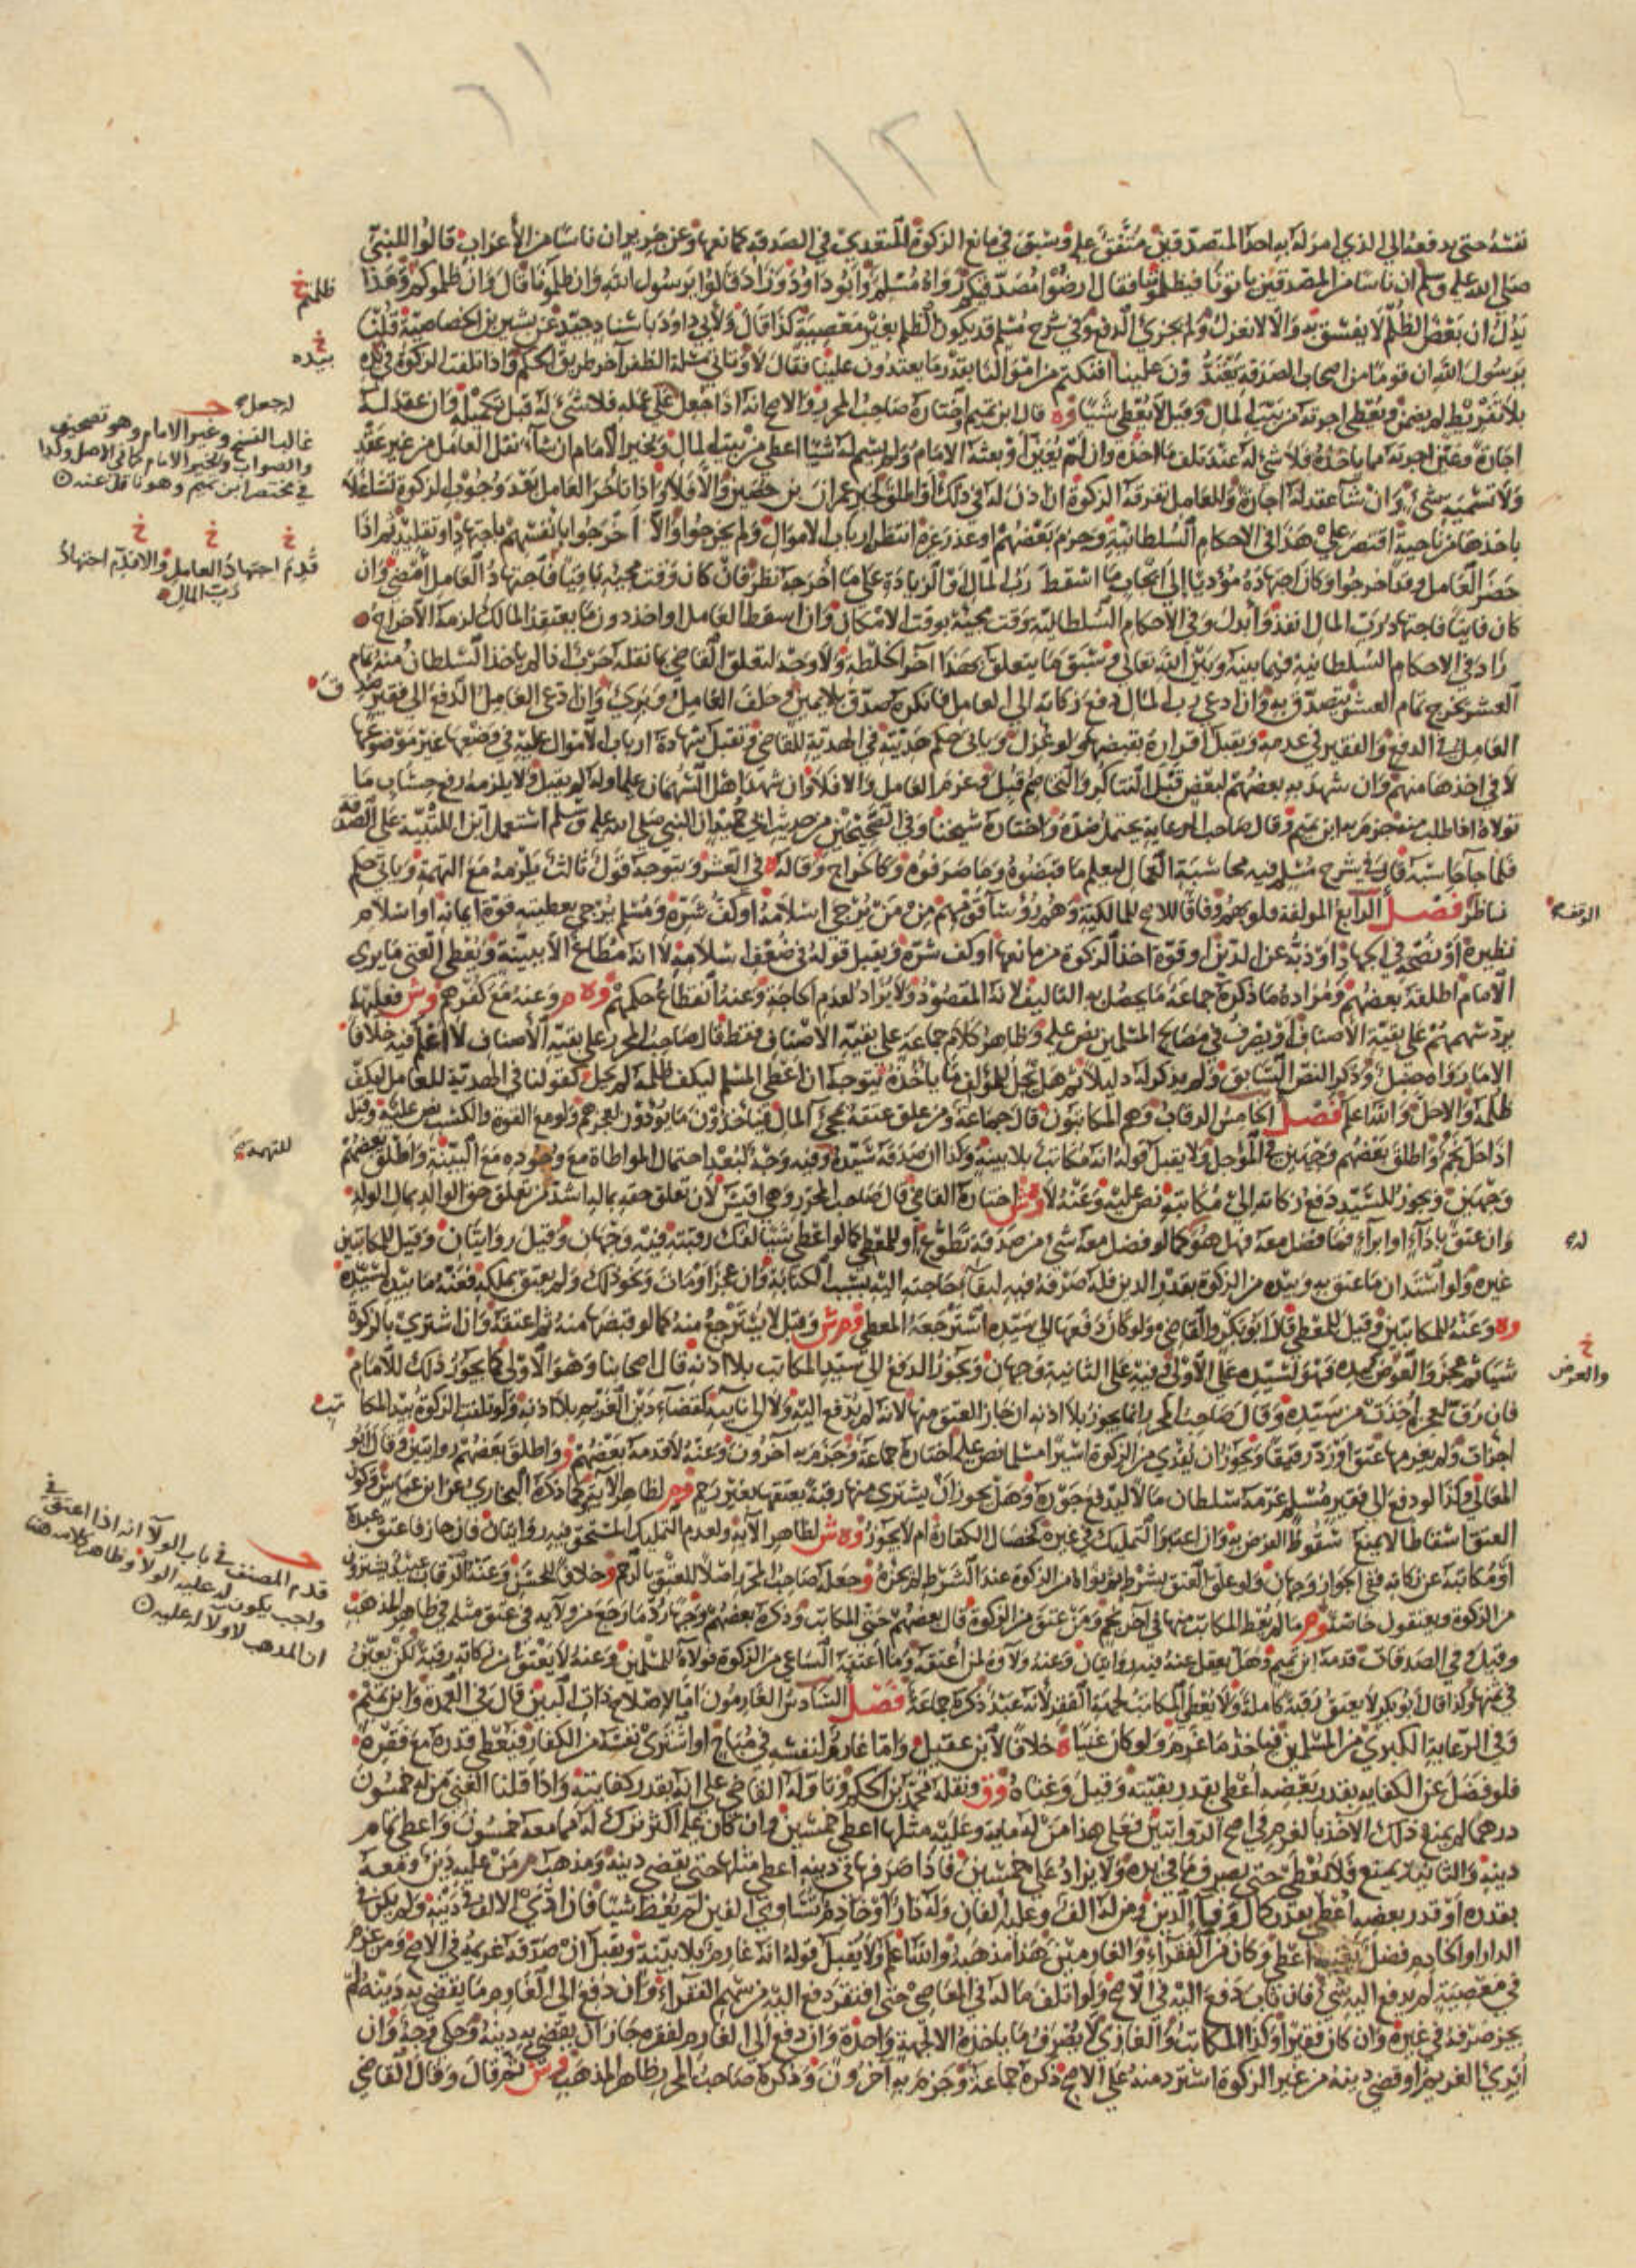 ١٢١
نفسه حتى يدفعه الى الذي امر له به احد المتصدقين متفق عليه وسبق في مانع الزكوة المتعدي في الصدقة كمانعها وعن جرير ان ناسا من الأعراب قالوا للنبي
صلى الله عليه وسلم ان ناسا من المصدقين ياتوننا فيظلموننا فقال ارضوا مصدقيكم رواه مسلم وابو داود وزاد قالوا يرسول الله وان ظلمونا قال وان ظلموكم وهذا
يدل ان بعض الظلم لا يفسق به والا لانعزل ولم يجزئ الدفع وفي شرح مسلم قد يكون الظلم بغير معصية كذا قال ولأبي داود باسناد جيد عن بشير بن الخصاصية قلنا
يرسول الله ان قوما من اصحاب الصدقة يعتدون علينا افنكتم من اموالنا بقدر ما يعتدون علينا فقال لا وياتي مسلة الظفر آخر طريق الحكم واذا تلفت الزكوة في يده
بلا تفريط لم يضمن ويعطى اجرته من بيت المال وقيل لا يعطى شيا وه قال ابن تميم واختاره صاحب المحرر والاصح انه اذا جعل له على عمله فلا شئ له قبل تكميله وان عقد له
اجارة وعين اجرته مما ياخذه فلا شئ له عند تلف ما اخذه وان لم يعين او بعثه الامام ولم يسم له شيا اعطي من بيت المال ويخير الامام ان شاء نفل العامل من غير عقد
ولا تسمية شئ وان شا عقد له اجارة وللعامل تفرقة الزكوة ان اذن له في ذلك او اطلق لخبر عمران بن حصين والا فلا واذا تاخر العامل بعد وجوب الزكوة تشاغلا
باخذها من ناحية اقتصر عليه هذا في الاحكام السلطانية وجزم بعضهم او عذر غيره انتظر ارباب الاموال ولم يخرجوا والا اخرجوا بانفسهم باجتهاد او تقليد ثم اذا
حضر العامل وقد اخرجوا وكان اجتهاده مؤديا الى ايجاب ما اسقط رب المال او الزيادة على ما اخرجه نظر فان كان وقت مجيئه باقيا فاجتهاد العامل امضى وان
كان فائتا فاجتهاد رب المال انفذ وابدل وفي الأحكام السلطانية وقت مجيئه بوقت الامكان وان اسقط العامل او اخذ دون ما يعتقد المالك لزمه الأخراج
زاد في الاحكام السلطانية فيما بينه وبين الله تعالى وسبق ما يتعلق بهذا آخر الخلطة ولا وجه لتعلق القاضي بما نقله حرب اذا لم ياخذ السلطان منه تمام
العشر يخرج تمام العشر يتصدق به وان ادعى رب المال دفع زكاته الى العامل فانكره صدق بلا يمين وحلف العامل وبرئ وان ادعى العامل الدفع الى فقير صدق
العامل في الدفع والفقير في عدمه ويقبل اقراره بقبضها ولو عزل وياتي حكم هديته في الهدية للقاضي وتقبل شهادة ارباب الاموال عليه في وضعها غير موضعها
لا في اخذها منهم وان شهد به بعضهم لبعض قبل التناكر والتخاصم قبل وغرم العامل والا فلا وان شهد اهل السهمان عليه او له لم يقبل ولا يلزمه رفع حساب ما
تولاه اذا طلب منه جزم به ابن تميم وقال صاحب الرعاية يحتمل ضده واختاره شيخنا وفي الصحيحين من حديث ابي حميد ان النبي صلى الله عليه وسلم استعمل ابن اللتبية على الصدقة
فلما جا حاسبه قال في شرح مسلم فيه محاسبة العمال ليعلم ما قبضوه وما صرفوه وكاخراج وقاله ه في العشر ويتوجه قول ثالث يلزمه مع التهمة وياتي حكم
ناظر فصل الرابع المؤلفة قلوبهم وفاقا للاصح للمالكية وهم رؤسا قومهم ممن يرجى اسلامه او كف شره ومسلم يرجى بعطيته قوة ايمانه او اسلام
نظيره او نصحه في الجهاد او ذبه عن الدين او قوة اخذ الزكوة من مانعها او كف شره ويقبل قوله في ضعف اسلامه لا انه مطاع الا ببينة ويعطى الغني ما يرى
الامام اطلقه بعضهم ومراده ما ذكره جماعة ما يحصل به التاليف لانه المقصود ولا يزاد لعدم الحاجة وعنه انقطاع حكمهم وه م وعنه مع كفرهم وش فعليهما
يرد سهمهم على بقية الأصناف او يصرف في مصالح المسلمين نص عليه وظاهر كلام جماعة على بقية الأصناف فقط قال صاحب المحرر على بقية الأصناف لا اعلم فيه خلافا
الا ما رواه حنبل وذكر النص السابق ولم يذكر له دليلا ثم هل يحل للمؤلف ما ياخذه يتوجه ان اعطي المسلم ليكف ظلمه لم يحل كقولنا في الهدية للعامل ليكف
ظلمه والا حل والله اعلم فصل الخامس الرقاب وهم المكاتبون قال جماعة ومن علق عتقه بمجئ المال فياخذون ما يؤدون لعجزهم ولو مع القوة والكسب نص عليه وقيل
اذا حل نجم واطلق بعضهم وجهين في المؤجل ولا يقبل قوله انه مكاتب بلا بينة وكذا ان صدقه سيده وفيه وجه لبعد احتمال المواطاة مع وجوده مع البينة واطلق بعضهم
وجهين ويجوز للسيد دفع زكاته الى مكاتبه نص عليه وعنه لا وش اختاره القاضي قال صاحب المحرر وهي اقيس لان تعلق حقه بماله اشد من تعلق حق الوالد بمال الولد
وان عتق باداء او ابراء فما فضل معه فهل هو كما لو فضل معه شئ من صدقة تطوع او للمعطي كما لو اعطي شيئا لفك رقبته فيه وجهان وقيل روايتان وقيل للمكاتبين
غيره ولو استدان ما عتق به وبيده من الزكوة بقدر الدين فله صرفه فيه لبقاء حاجته اليه بسبب الكتابة وان عجز او مات ونحو ذلك ولم يعتق بملكه فعنه ما بيده لسيده
وه وعنه للمكاتبين وقيل للمعطي قاله ابو بكر والقاضي ولو كان دفعها الى سيده استرجعه المعطي وم ش وقيل لا يسترجع منه كما لو قبضها منه ثم اعتقه وان اشترى بالزكوة
شيا ثم عجز والعوض بيده فهو لسيده على الأولى وفيه على الثانية وجهان ويجوز الدفع الى سيد المكاتب بلا اذنه قال اصحابنا وهو الأولى كما يجوز ذلك للامام
فان رق لعجزه اخذت من سيده وقال صاحب المحرر انما يجوز بلا اذنه ان جاز العتق منها لانه لم يدفع اليه ولا الى نايبه كقضاء دين الغريم بلا اذنه ولو تلفت الزكوة بيد المكا
اجزات ولم يغرمها عتق او رد رقيقا ويجوز ان يفدي من الزكوة اسيرا مسلما نص عليه اختاره جماعة وجزم به آخرون وعنه لا قدمه بعضهم وو واطلق بعضهم روايتين وقال ابو
المعالي وكذا لو دفع الى فقير مسلم غرمه سلطان مالا ليدفع جوره وهل يجوز ان يشتري منها رقبة يعتقها بغير رحم وم لظاهر الآية كما ذكره البخاري عن ابن عباس وكون
العتق اسقاطا لا يمنع سقوط الفرض به وان اعتبر التمليك في غيره كخصال الكفارة ام لا يجوز وه ش لظاهر الآية ولعدم التمليك المستحق فيه روايتان فان جاز فاعتق عبده
او مكاتبه عن زكاته ففي الجواز وجهان ولو علق العتق بشرط ثم نواه من الزكوة عند الشرط لم يجزه وجعله صاحب المحرر اصلا للعتق بالرحم وخلافا للحسن وعنه الرقاب عبيد يشترون
من الزكوة ويعتقون خاصة وم ما لم يعط المكاتب منها في آخر نجم ومن عتق من الزكوة قال بعضهم حتى المكاتب وذكره بعضهم وجها رد ما رجع من ولايه في عتق مثله في ظاهر المذهب
وقيل وفي الصدقات قدمه ابن تميم وهل يعقل عنه فيه روايتان وعنه ولاؤه لمن اعتقه وما اعتقه الساعي من الزكوة فولاؤه للمسلمين وعنه لا يعتق من زكاته رقبة لكن يعين
في ثمنها وكذا قال ابو بكر لا يعتق رقبة كاملة ولا يعطى المكاتب لجهة الفقر لأنه عبد ذكره جماعة فصل السادس الغارمون اما لاصلاح ذات البين قال في العمدة وابن تميم
وفي الرعاية الكبرى من المسلمين فياخذ ما غرم ولو كان غنيا ه خلافا لابن عقيل واما غارم لنفسه في مباح او اشترى نفسه من الكفار فيعطى قدره مع فقره
فلو فضل عن الكفاية بقدر بعضه اعطي بقدر بقيته وقيل وغناه وق ونقله محمد بن الحكم وتاوله القاضي على انه بقدر كفايته واذا قلنا الغني من له خمسون
درهما لم يمنع ذلك الاخذ بالغرم في اصح الروايتين فعلى هذا من له ماية وعليه مثلها اعطي خمسين وان كان عليه اكثر ترك له مما معه خمسون واعطي تمام
دينه والثانية يمنع فلا يعطى حتى يصرف ما في يده ولا يزاد على خمسين فاذا صرفها في دينه اعطي مثلها حتى يقضي دينه ومذهب م من عليه دين ومعه
بقدره او قدر بعضه اعطي بقدر كمال وفاء الدين ومن له الف وعليه الفان وله دار او خادم تساوي الفين لم يعط شيا فان ادى الالف في دينه ولم يكن في
الدار او الخادم فضل يغنيه اعطي وكان من الفقراء والغارمين هذا مذهبه والله اعلم ولا يقبل قوله انه غارم بلا بينة ويقبل ان صدقه غريمه في الاصح ومن غرم
في معصية لم يدفع اليه شئ فان تاب دفع اليه في الاصح ولو اتلف ماله في المعاصي حتى افتقر دفع اليه من سهم الفقراء وان دفع الى الغارم ما يقضي به دينه لم
يجز صرفه في غيره وان كان فقيرا وكذا المكاتب والغازي لا يصرف ما ياخذه الا لجهة واحدة وان دفع الى الغارم لفقره جاز ان يقضي به دينه وحكي وجه وان
ابرئ الغريم او قضى دينه من غير الزكوة استرد منه على الاصح ذكره جماعة وجزم به آخرون وذكره صاحب المحرر ظاهر المذهب وش ثم قال وقال القاضي
ظلمتم خ
خ بيده
له جعل
غالب النسخ وغير الامام وهو تصحيف
والصواب ويخير الامام كما في الاصل وكذا
في مختصر ابن تميم وهو ناقل عنه
خ خ خ
قدم اجتهاد العامل والا قدم اجتهاد
رب المال
الوقف
للتهمة
له
خ
والعرض
تب
قدم المصنف في باب الولآ انه اذا اعتق في
واجب يكون له عليه الولا وظاهر كلامه هنا
ان المذهب لا ولا له عليه